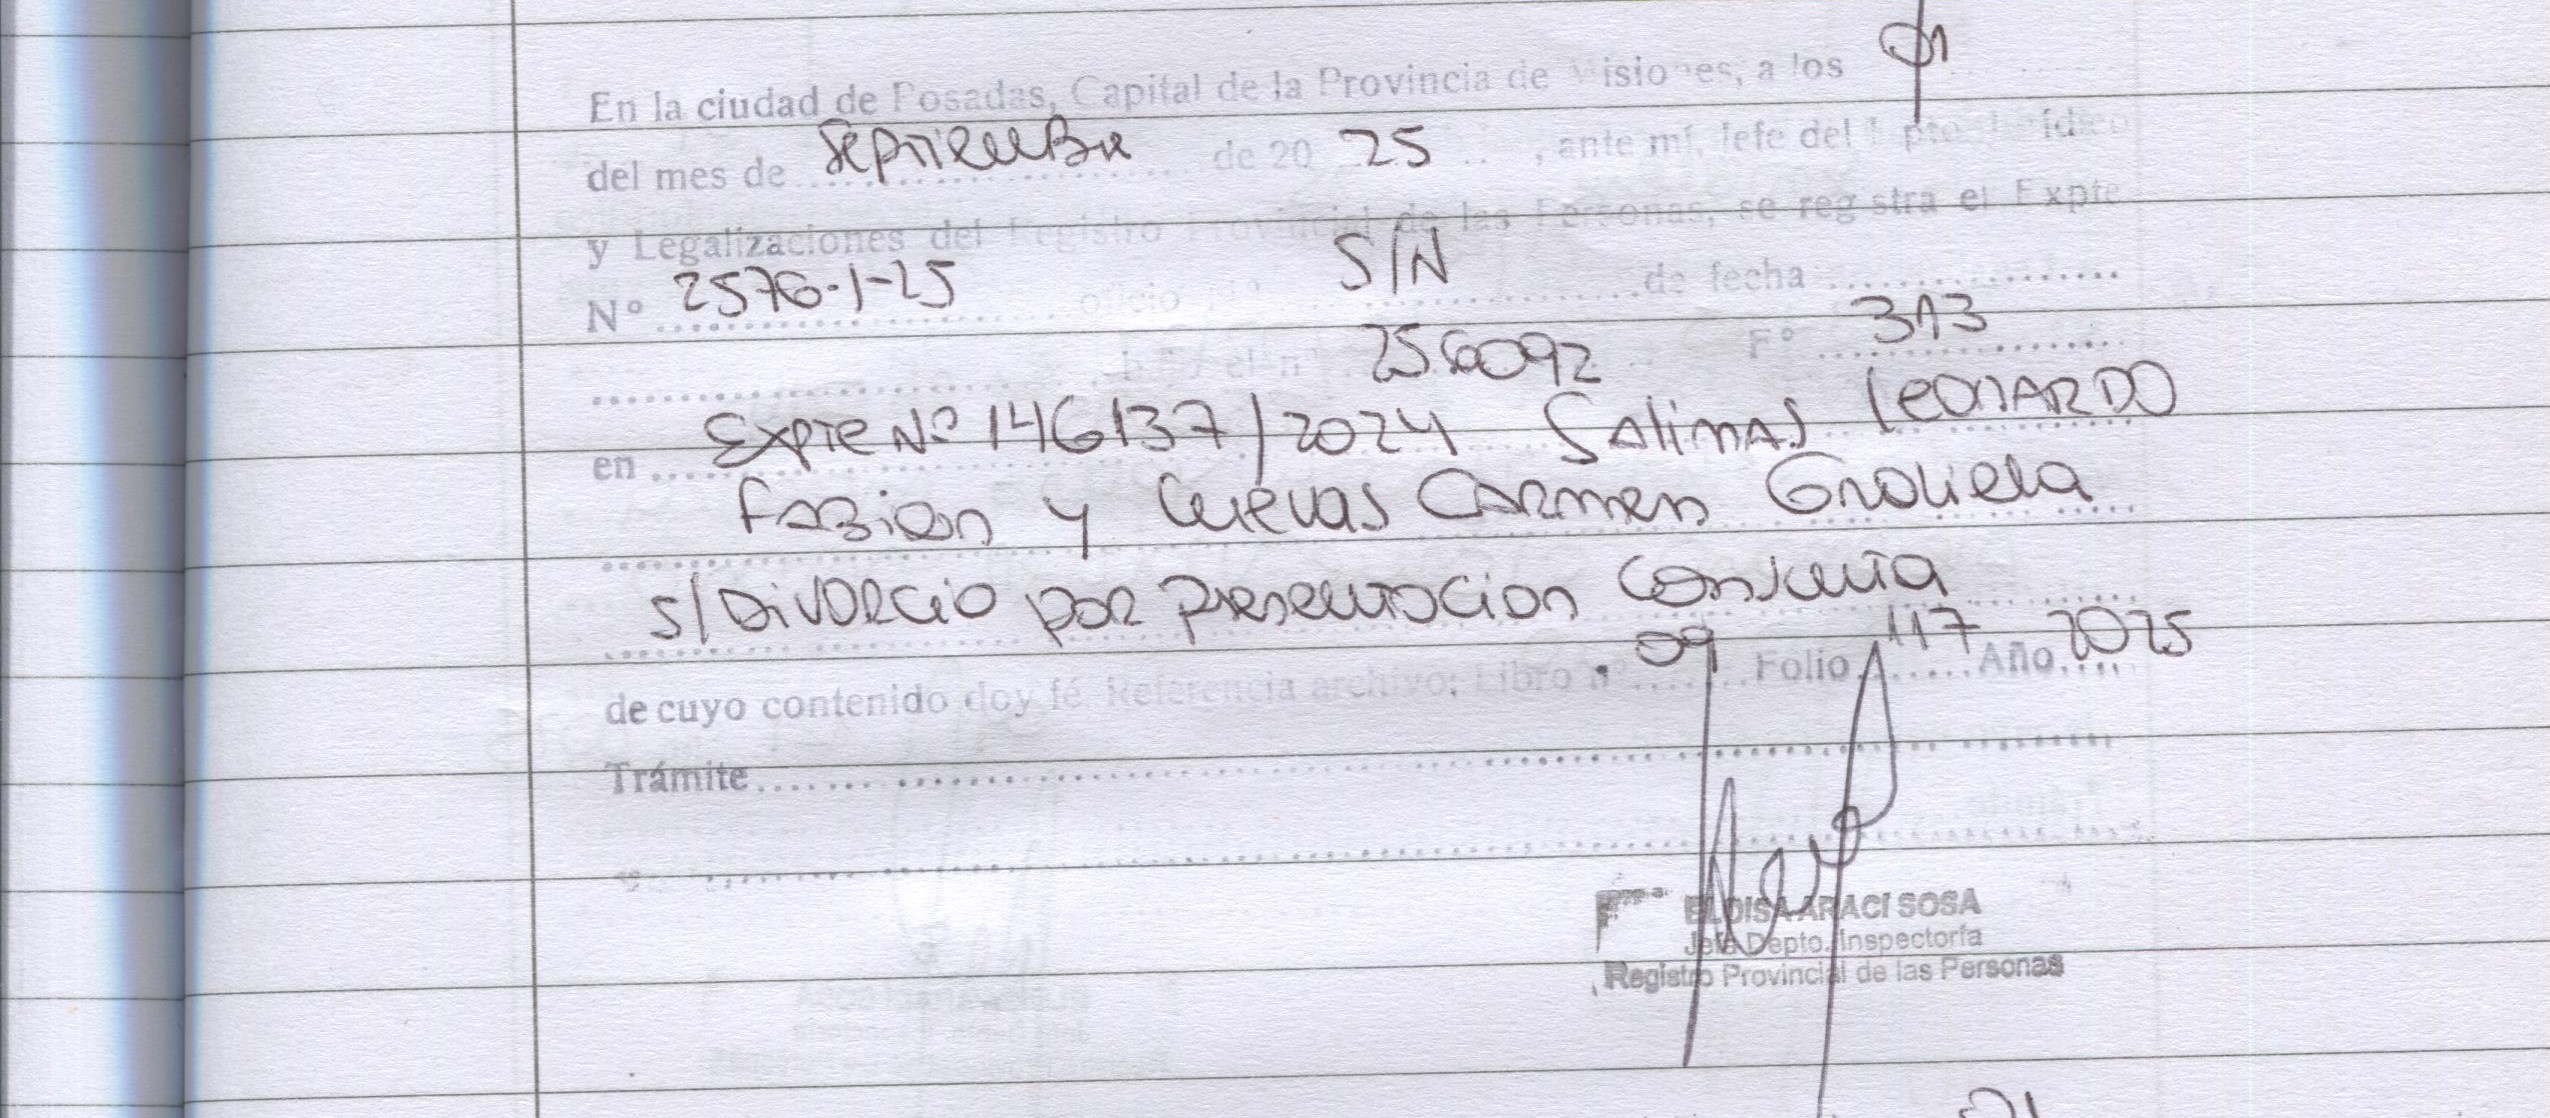 En la ciudad de Posadas, Capital de la Provincia de Misiones, a los 01
del mes de Septiembre de 20 25, ante mí, Jefe del Dpto. Jurídico
y Legalizaciones del Registro Provincial de las Personas, se registra el Expte
Nº 2576-1-25 oficio Nº S/N de fecha
bajo el nº 256092 Fº 313
en Expte Nº 146137/2024 Salinas Leonardo
Fabian y Cuevas Carmen Graciela
s/Divorcio por Presentacion Conjunta
de cuyo contenido doy fé. Referencia archivo: Libro nº 09 Folio 117 Año 2025
Trámite
ELOISA ARACI SOSA
Jefa Depto. Inspectoría
Registro Provincial de las Personas